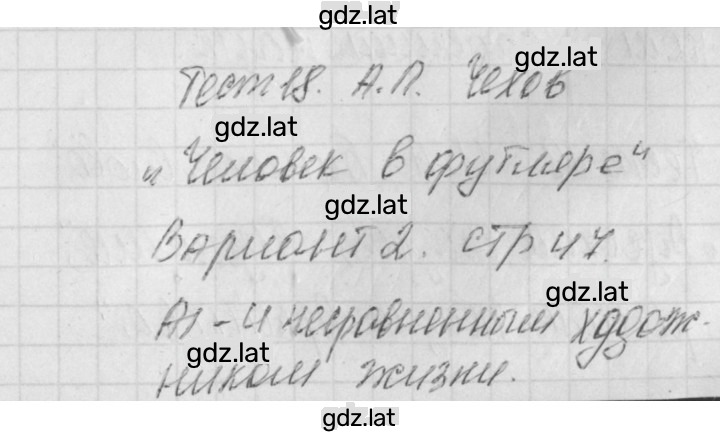 gdz.lat
gdz.lat
Тест 18. А.П. Чехов
gdz.lat
"Человек в футляре"
gdz.lat
Вариант 2. стр 47.
gdz.lat
А1 - 4 несравненным худож-
gdz.lat
ником жизни.
gdz.lat